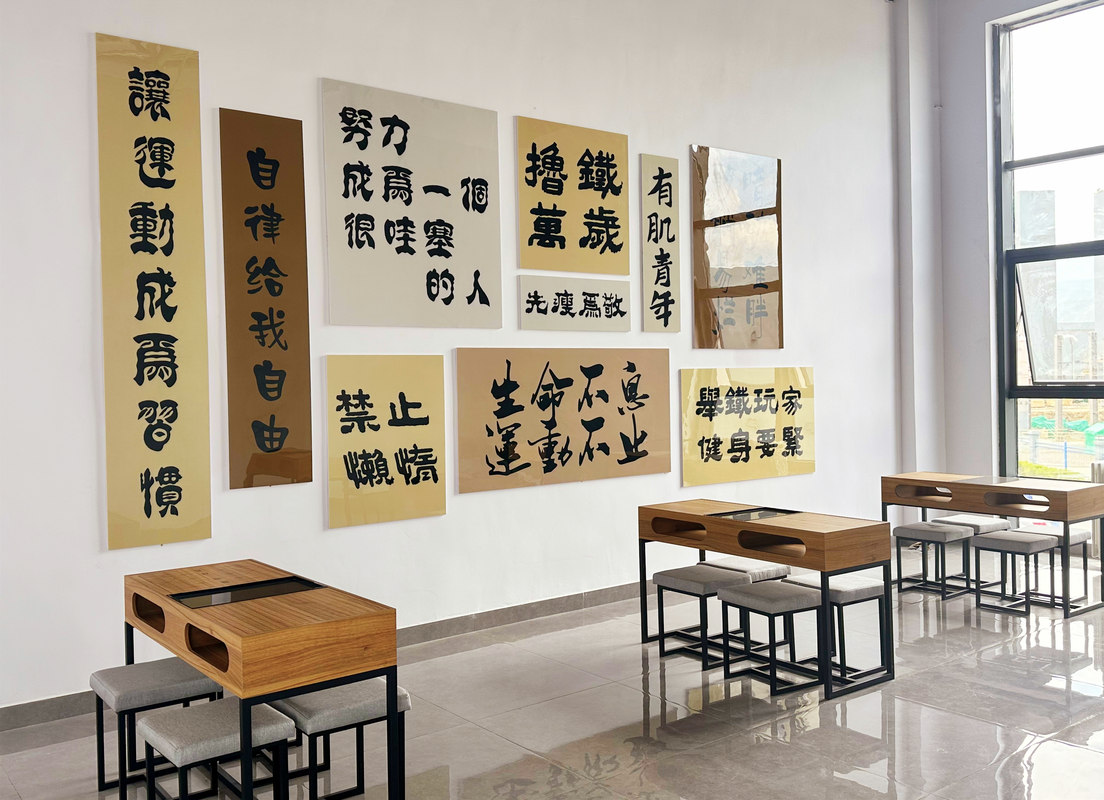 讓運動成爲習慣
自律给我自由
努力
成爲一個
很哇塞
的人
擼鐵
萬歲
先瘦爲敬
有肌青年
禁止
懶惰
生命不息
運動不止
舉鐵玩家
健身要緊